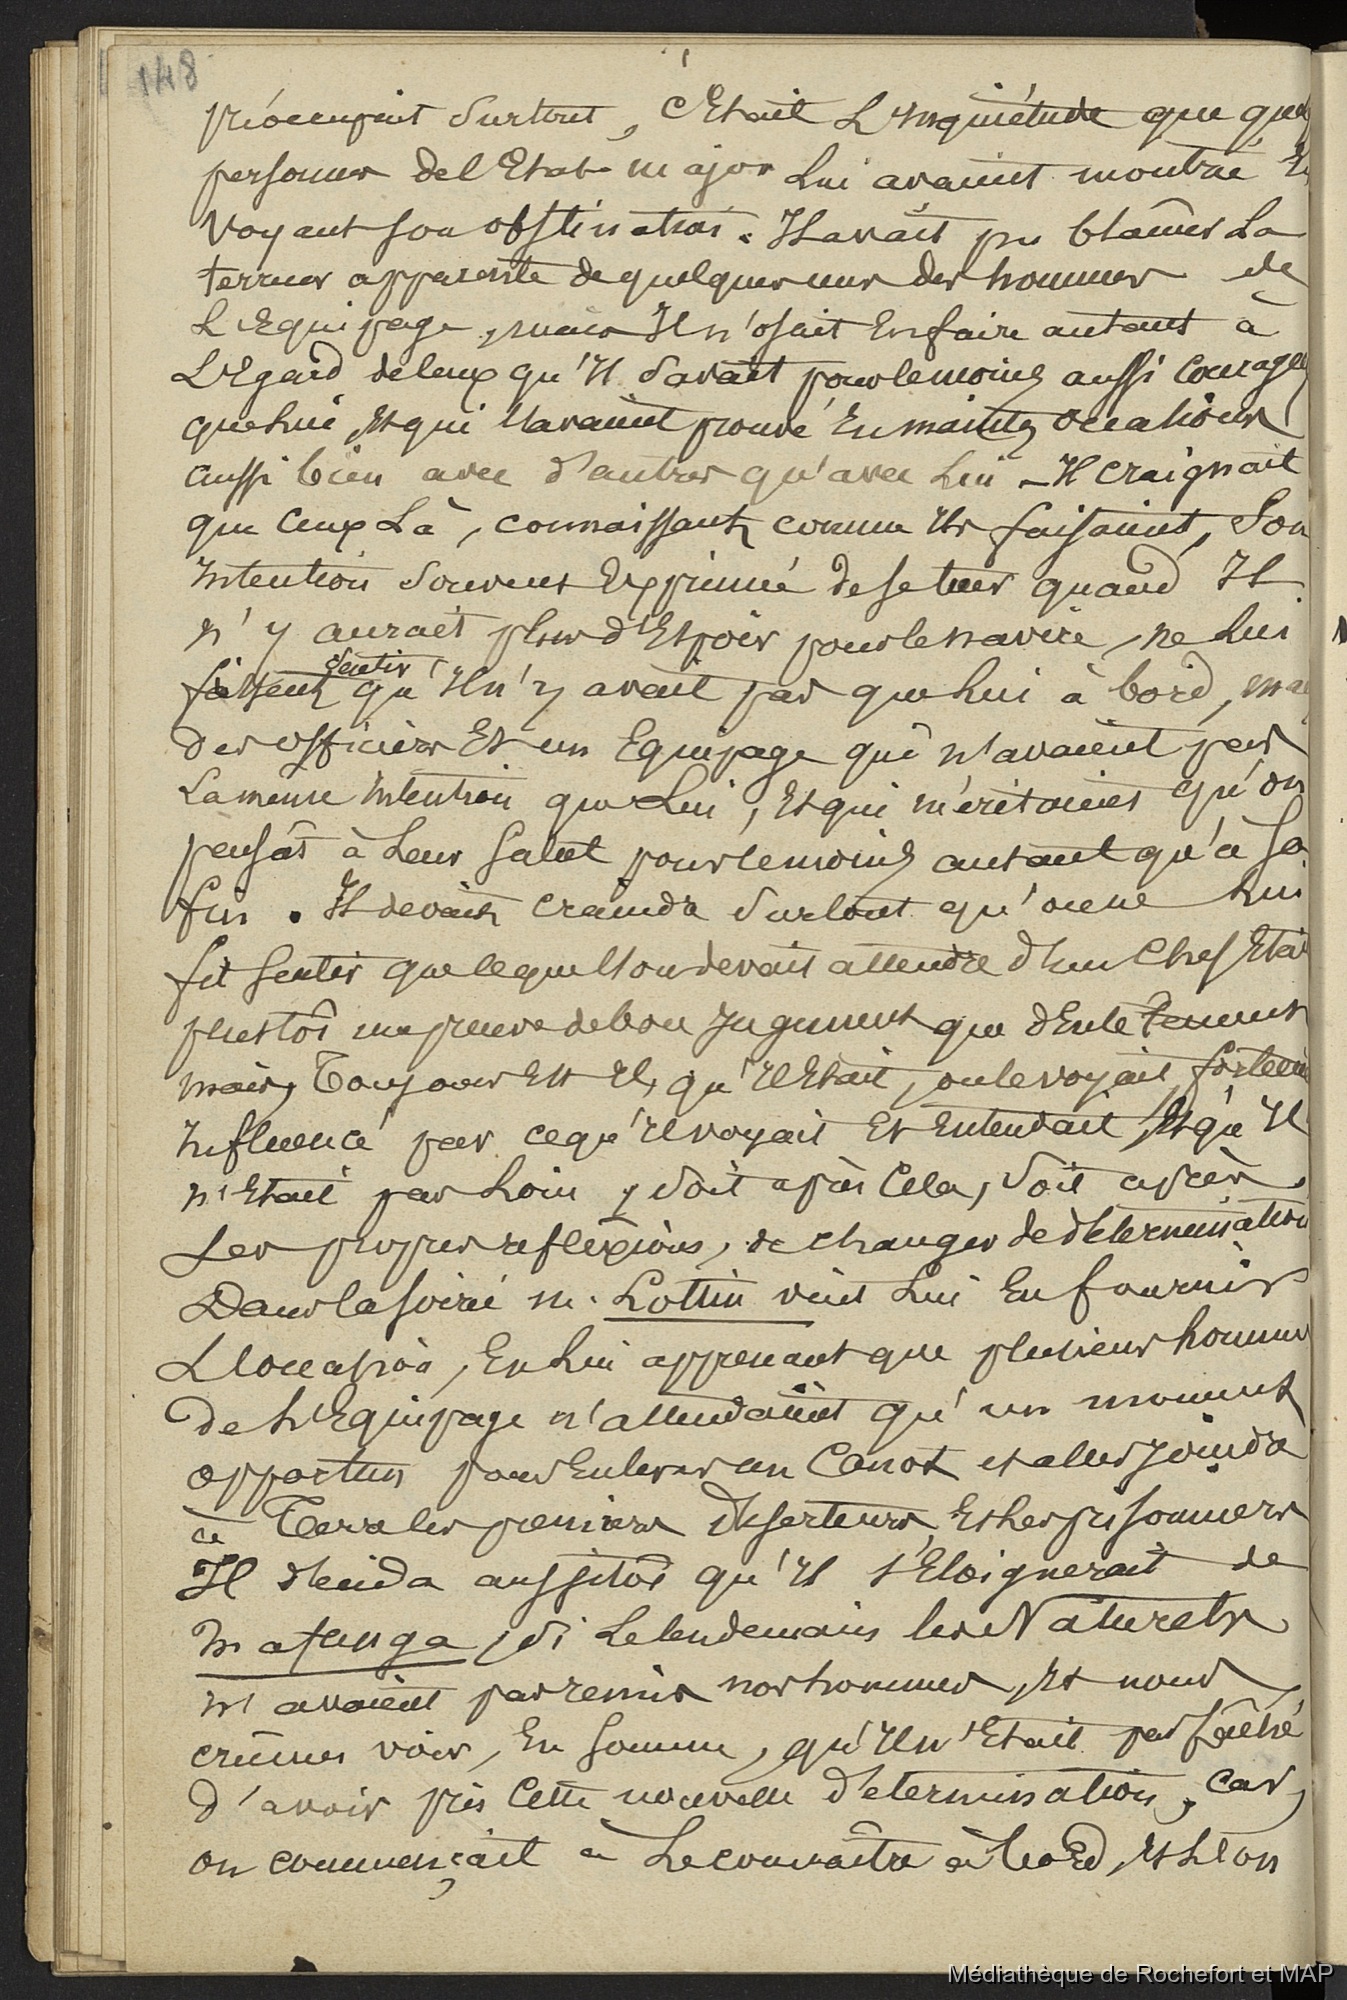 148
préoccupait surtout, c'Etait L'inquiétude que quel
personnes de l'Etat-major Lui avaient montrée En
voyant son obstination. Il avait pu blâmer La
terreur apparente de quelques uns des hommes de
L'Equipage, mais Il n'osait En faire autant à
L'Egard de ceux qu'Il savait pour le moins aussi courageux
que Lui, Et qui l'avaient prouvé En maintes occasions
aussi bien avec d'autres qu'avec Lui - Il craignait
que ceux Là, connaissant, comme Ils faisaient, Son
Intention souvent Exprimée de se tuer quand Il
n'y aurait plus d'Espoir pour le navire, ne Lui
fissent sentir qu'Il n'y avait pas que Lui à bord, mais
des officiers Et un Equipage qui n'avaient pas
La même Intention que Lui, Et qui méritaient qu'on
pensât à Leur Salut pour le moins autant qu'à Sa
fin. Il devait craindre surtout qu'on ne Lui
fit sentir que ce que l'on devait attendre d'un Chef Etait
plustôt une preuve de bon Jugement que d'Entêtement
mais, Toujours Est Il, qu'Il Etait, on le voyait, fortement
Influencé par ce qu'Il voyait Et Entendait, Et qu'Il
n'Etait pas Loin, soit après Cela, soit après
Ses propres reflexions, de changer de détermination
Dans la soirée m. Lottin vint Lui En fournir
L'occasion, En Lui apprenant que plusieurs hommes
de L'Equipage n'attendaient qu'un moment
opportun pour Enlever un Canot et aller joindre
à Terre les premiers déserteurs, Et les prisonniers
Il décida aussitôt qu'Il s'Eloignerait de
Mafanga, si Le lendemain les Naturels
n'avaient pas remis nos hommes, Et nous
crûmes voir, En Somme, qu'Il n'Etait pas fâché
d'avoir pris Cette nouvelle détermination, car,
on commençait à Le connaître à bord, Et L'on
Médiathèque de Rochefort et MAP